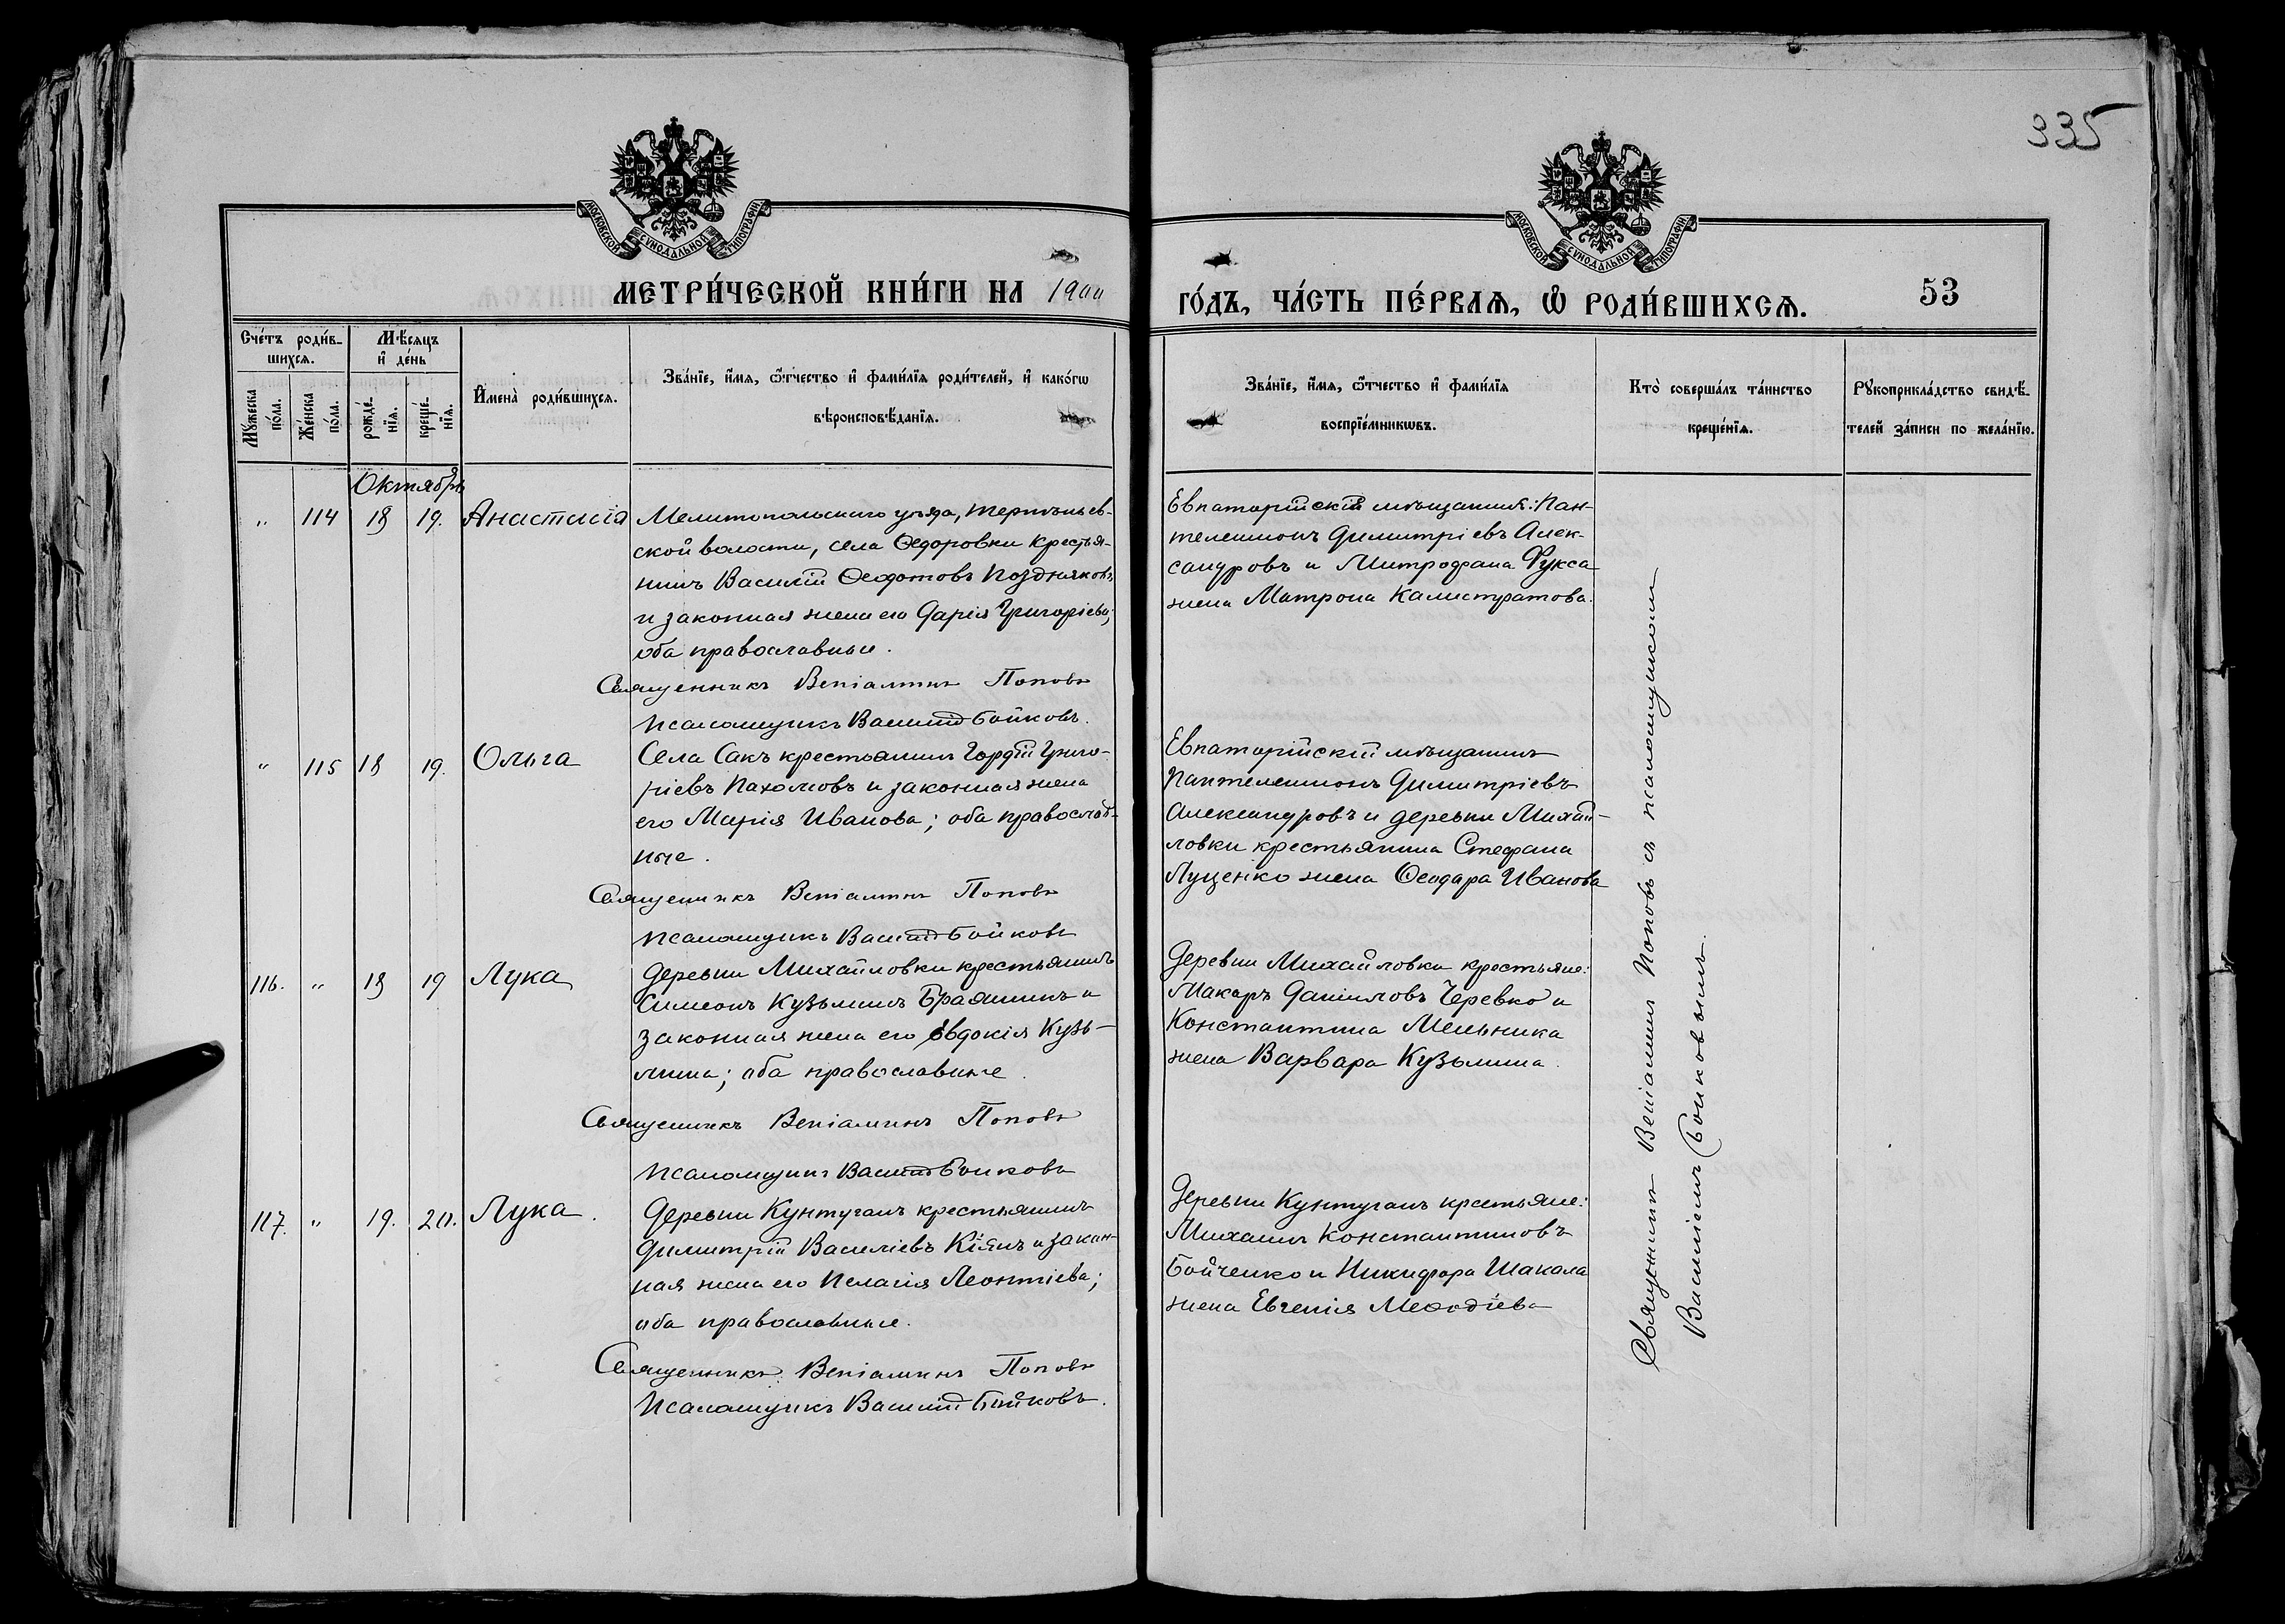 335
МОСКОВСКОЙ СѴНОДАЛЬНОЙ ТИПОГРАФІИ
МОСКОВСКОЙ СѴНОДАЛЬНОЙ ТИПОГРАФІИ
МЕТРИ́ЧЕСКОЙ КНИ́ГИ НА 1900
ГО́ДЪ, ЧА́СТЬ ПЕ́РВАѦ, Ѿ РОДИ́ВШИХСѦ.
53
Сче́тъ роди́в-
шихся.
Мѣ́сяцъ
и҆ де́нь
Мꙋ́жеска
по́ла.
Же́нска
по́ла.
рожде́-
нїя.
креще́-
нїя.
И҆мена̀ роди́вшихся.
Зва́нїе, и҆́мя, ѻ҆́тчество и҆ фами́лїя роди́телей, и҆ како́гѡ
вѣроисповѣ́данїя.
Зва́нїе, и҆́мя, ѻ҆́тчество и҆ фами́лїя
воспрїе́мникѡвъ.
Кто̀ соверша́лъ та́инство
креще́нїя.
Рꙋкоприкла́дство свидѣ́-
телей за́писи по жела́нїю.
Октябрь
" 114 18 19. Анастасія
Мелитопольскаго уѣзда, Терпѣньев-
ской волости, села Ѳедоровки крестья-
нинъ Василій Ѳеодотовъ Поздняковъ
и законная жена его Дарія Григоріева;
оба православные.
Священникъ Веніаминъ Поповъ
Псаломщикъ Василій Бойковъ.
Евпаторійскій мѣщанинъ: Пан-
телеимонъ Димитріевъ Алек-
сандровъ и Митрофана Фукса
жена Матрона Калистратова.
" 115 18 19. Ольга
Села Сакъ крестьянинъ Гордій Григо-
ріевъ Пахомовъ и законная жена
его Марія Иванова; оба православ-
ные.
Священникъ Веніаминъ Поповъ
Псаломщикъ Василій Бойковъ
Евпаторійскій мѣщанинъ
Пантелеимонъ Димитріевъ
Александровъ и деревни Михай-
ловки крестьянина Стефана
Луценко жена Ѳеодора Иванова
116. " 18 19 Лука
Деревни Михайловки крестьянинъ
Симеонъ Кузьминъ Браянинъ и
законная жена его Евдокія Кузь-
мина; оба православные.
Священникъ Веніаминъ Поповъ
Псаломщикъ Василій Бойковъ
Деревни Михайловки крестьяне:
Макаръ Даниловъ Черевко и
Константина Мельника
жена Варвара Кузьмина.
117. " 19. 20. Лука.
Деревни Кунтуганъ крестьянинъ
Димитрій Василіевъ Кіянъ и закон-
ная жена его Пелагія Леонтіева;
оба православные.
Священникъ Веніаминъ Поповъ
Псаломщикъ Василій Бойковъ.
Деревни Кунтуганъ крестьяне:
Михаилъ Константиновъ
Бойченко и Никифора Шакала
жена Евгенія Меѳодіева
Священникъ Веніаминъ Поповъ съ псаломщикомъ
Василіемъ Бойковымъ.